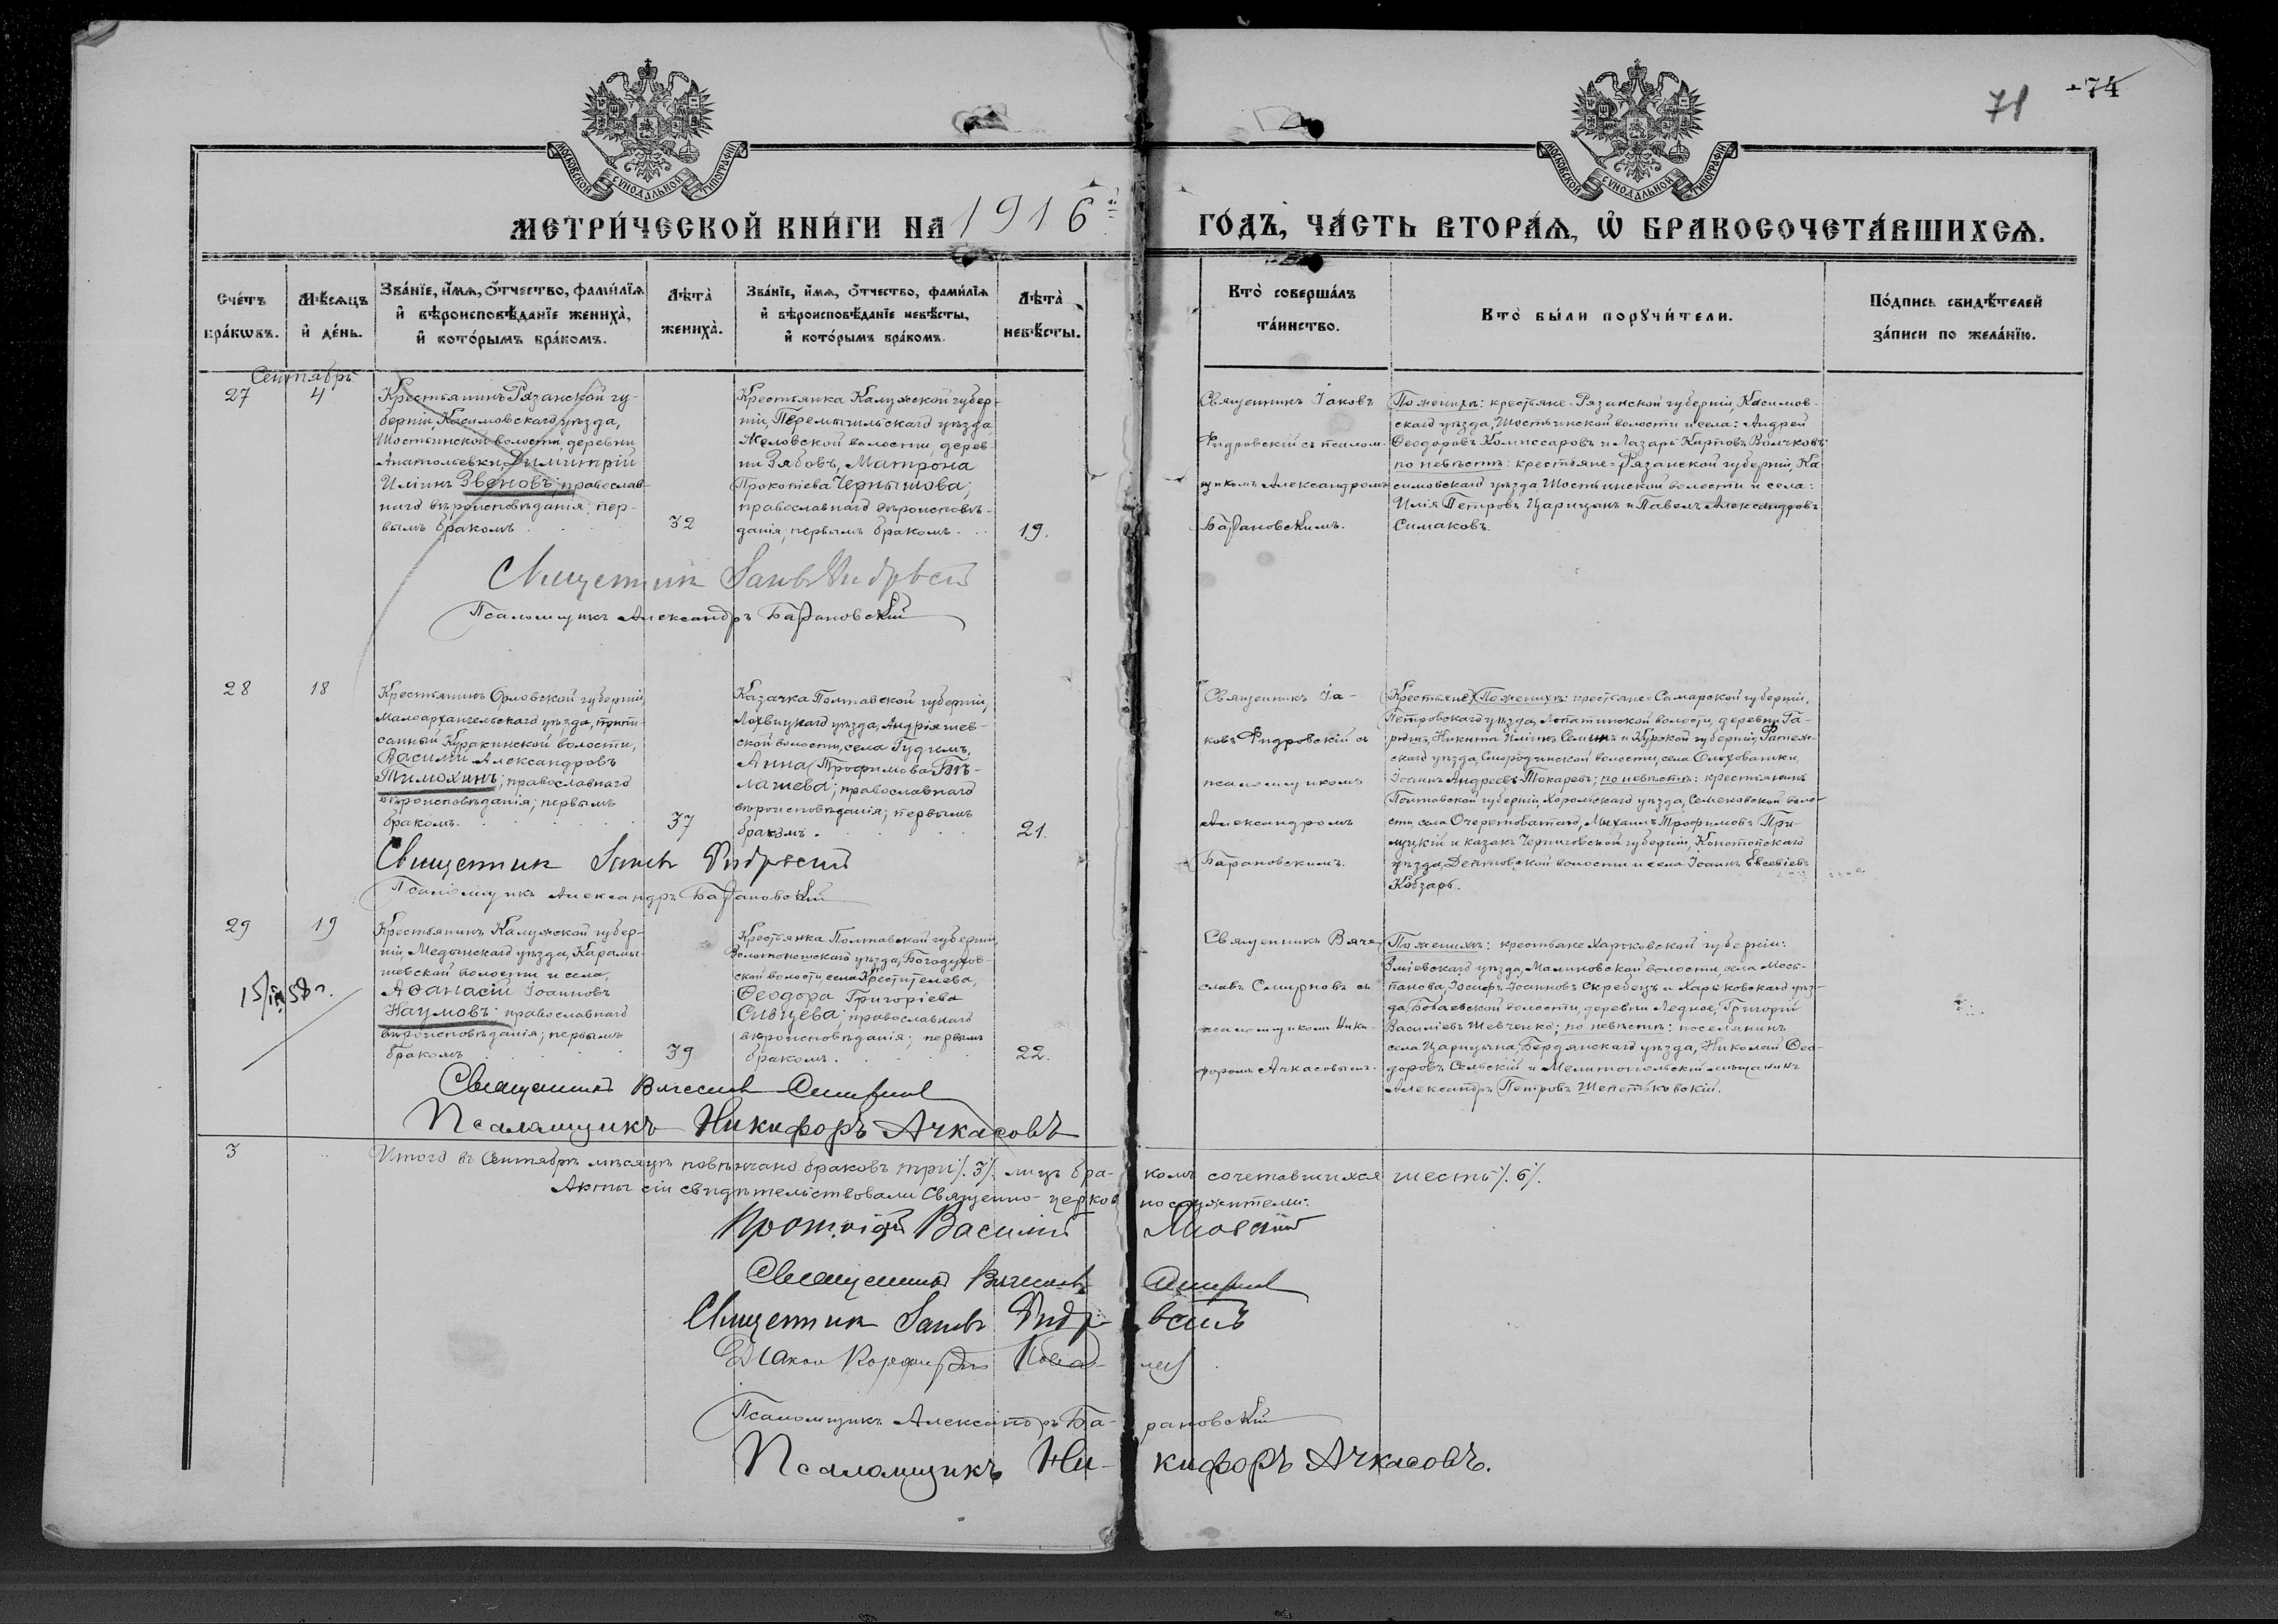 71
74
МОСКОВСКОЙ СѴНОДАЛЬНОЙ ТИПОГРАФІИ
МОСКОВСКОЙ СѴНОДАЛЬНОЙ ТИПОГРАФІИ
МЕТРИ́ЧЕСКОЙ КНИ́ГИ НА 1916й ГО́ДЪ, ЧА́СТЬ ВТОРА́Ѧ, Ѡ҆ БРАКОСОЧЕТА́ВШИХСѦ.
Сче́тъ бра́кѡвъ.
Мѣ́сяцъ и҆ де́нь.
Зва́нїе, и҆́мѧ, ѻ҆́тчество, фами́лїѧ
и҆ вѣроисповѣ́данїе жениха̀,
и҆ кото́рымъ бра́комъ.
Лѣта̀ жениха̀.
Зва́нїе, и҆́мѧ, ѻ҆́тчество, фами́лїѧ
и҆ вѣроисповѣ́данїе невѣ́сты,
и҆ кото́рымъ бра́комъ.
Лѣта̀ невѣ́сты.
Кто̀ соверша́лъ та́инство.
Кто̀ бы́ли порꙋчи́тели.
По́дпись свидѣ́телей
за́писи по жела́нїю.
Сентябрь
27
4
Крестьянинъ Рязанской гу-
берніи, Касимовскаго уѣзда,
Шостьинской волости, деревни
Анатольевки Димитрій
Иліинъ Звоновъ; православ-
наго вѣроисповѣданія; пер-
вымъ бракомъ
32
Крестьянка Калужской губер-
ніи, Перемышльскаго уѣзда,
Желовской волости, дерев-
ни Зябовъ, Матрона
Прокопіева Чернышова;
православнаго вѣроисповѣ-
данія, первымъ бракомъ.
19.
Священникъ Іаковъ
Фидровскій съ псалом-
щикомъ Александромъ
Барановскимъ.
По женихѣ: крестьяне Рязанской губерніи, Касимов-
скаго уѣзда, Шостьинской волости и села: Андрей
Ѳеодоровъ Коммиссаровъ и Лазарь Карповъ Волчковъ;
по невѣстѣ: крестьяне Рязанской губерніи, Ка-
симовскаго уѣзда, Шостьинской волости и села:
Илія Петровъ Царицынъ и Павелъ Александровъ
Симаковъ.
Священник Іаковъ Фидровскій
Псаломщикъ Александръ Барановскій
28
18
Крестьянинъ Орловской губерніи,
Малоархангельскаго уѣзда, припи-
санный Куракинской волости,
Василій Александровъ
Тимохинъ; православнаго
вѣроисповѣданія; первымъ
бракомъ.
37
Казачка Полтавской губерніи,
Лохвицкаго уѣзда, Андріяшев-
ской волости, села Гудимъ,
Анна Трофимова Бѣ-
лашева; православнаго
вѣроисповѣданія; первымъ
бракомъ.
21.
Священникъ Іа-
ковъ Фидровскій съ
псаломщикомъ
Александромъ
Барановскимъ.
Крестьяне По женихѣ: крестьяне Самарской губерніи,
Петровскаго уѣзда, Лопатинской волости, деревни Га-
Никита Иліинъ Семинъ и Курской губерніи, Фатеж-
скаго уѣзда, Смородинской волости, села Ольховатки,
Іоаннъ Андреевъ Токаревъ; по невѣстѣ: крестьянинъ
Полтавской губерніи, Хорольскаго уѣзда, Семеновской воло-
сти, села Очеретоватаго, Михаилъ Трофимовъ При-
луцкій и казакъ Черниговской губерніи, Конотопскаго
уѣзда, Дептовской волости и села Іоаннъ Евсевіевъ
Кобзарь.
Священник Іаковъ Фидровскій
Псаломщикъ Александръ Барановскій
29
19
15/IX 58 г.
Крестьянинъ Калужской губер-
ніи, Медынскаго уѣзда, Карамы-
шевской волости и села,
Аѳанасій Іоанновъ
Наумовъ; православнаго
вѣроисповѣданія; первымъ
бракомъ
39
Крестьянка Полтавской губерніи,
Золотоношскаго уѣзда, Богодухов-
ской волости, села Крестителева,
Ѳеодора Григоріева
Сивцева; православнаго
вѣроисповѣданія; первымъ
бракомъ.
22.
Священникъ Вяче-
славъ Смирновъ съ
псаломщикомъ Ники-
форомъ Ачкасовымъ.
По женихѣ: крестьяне Харьковской губерніи:
Зміевскаго уѣзда, Малиновской волости, села Мос-
панова, Іосифъ Іоанновъ Скребецъ и Харьковскаго уѣз-
да, Бабаевской волости, деревни Ледное, Григорій
Василіевъ Шевченко; по невѣстѣ: поселянинъ
села Царицына, Бердянскаго уѣзда, Николай Ѳео-
доровъ Сельскій и Мелитопольскій мѣщанинъ
Александръ Петровъ Шепетьковскій.
Священникъ Вячеславъ Смирновъ
Псаломщикъ Никифоръ Ачкасовъ
3
Итого въ Сентябрѣ мѣсяцѣ повѣнчано браковъ три /.3/. лицъ бра-комъ сочетавшихся шесть /.6/.
Акты сіи свидѣтельствовали Священно-церковнослужители:
Протоіерей Василій
Священникъ Вячеславъ Смирновъ
Священник Іаковъ Фидровскій
Діаконъ
Псаломщикъ Александръ Ба-рановскій
Псаломщикъ Ни-кифоръ Ачкасовъ.